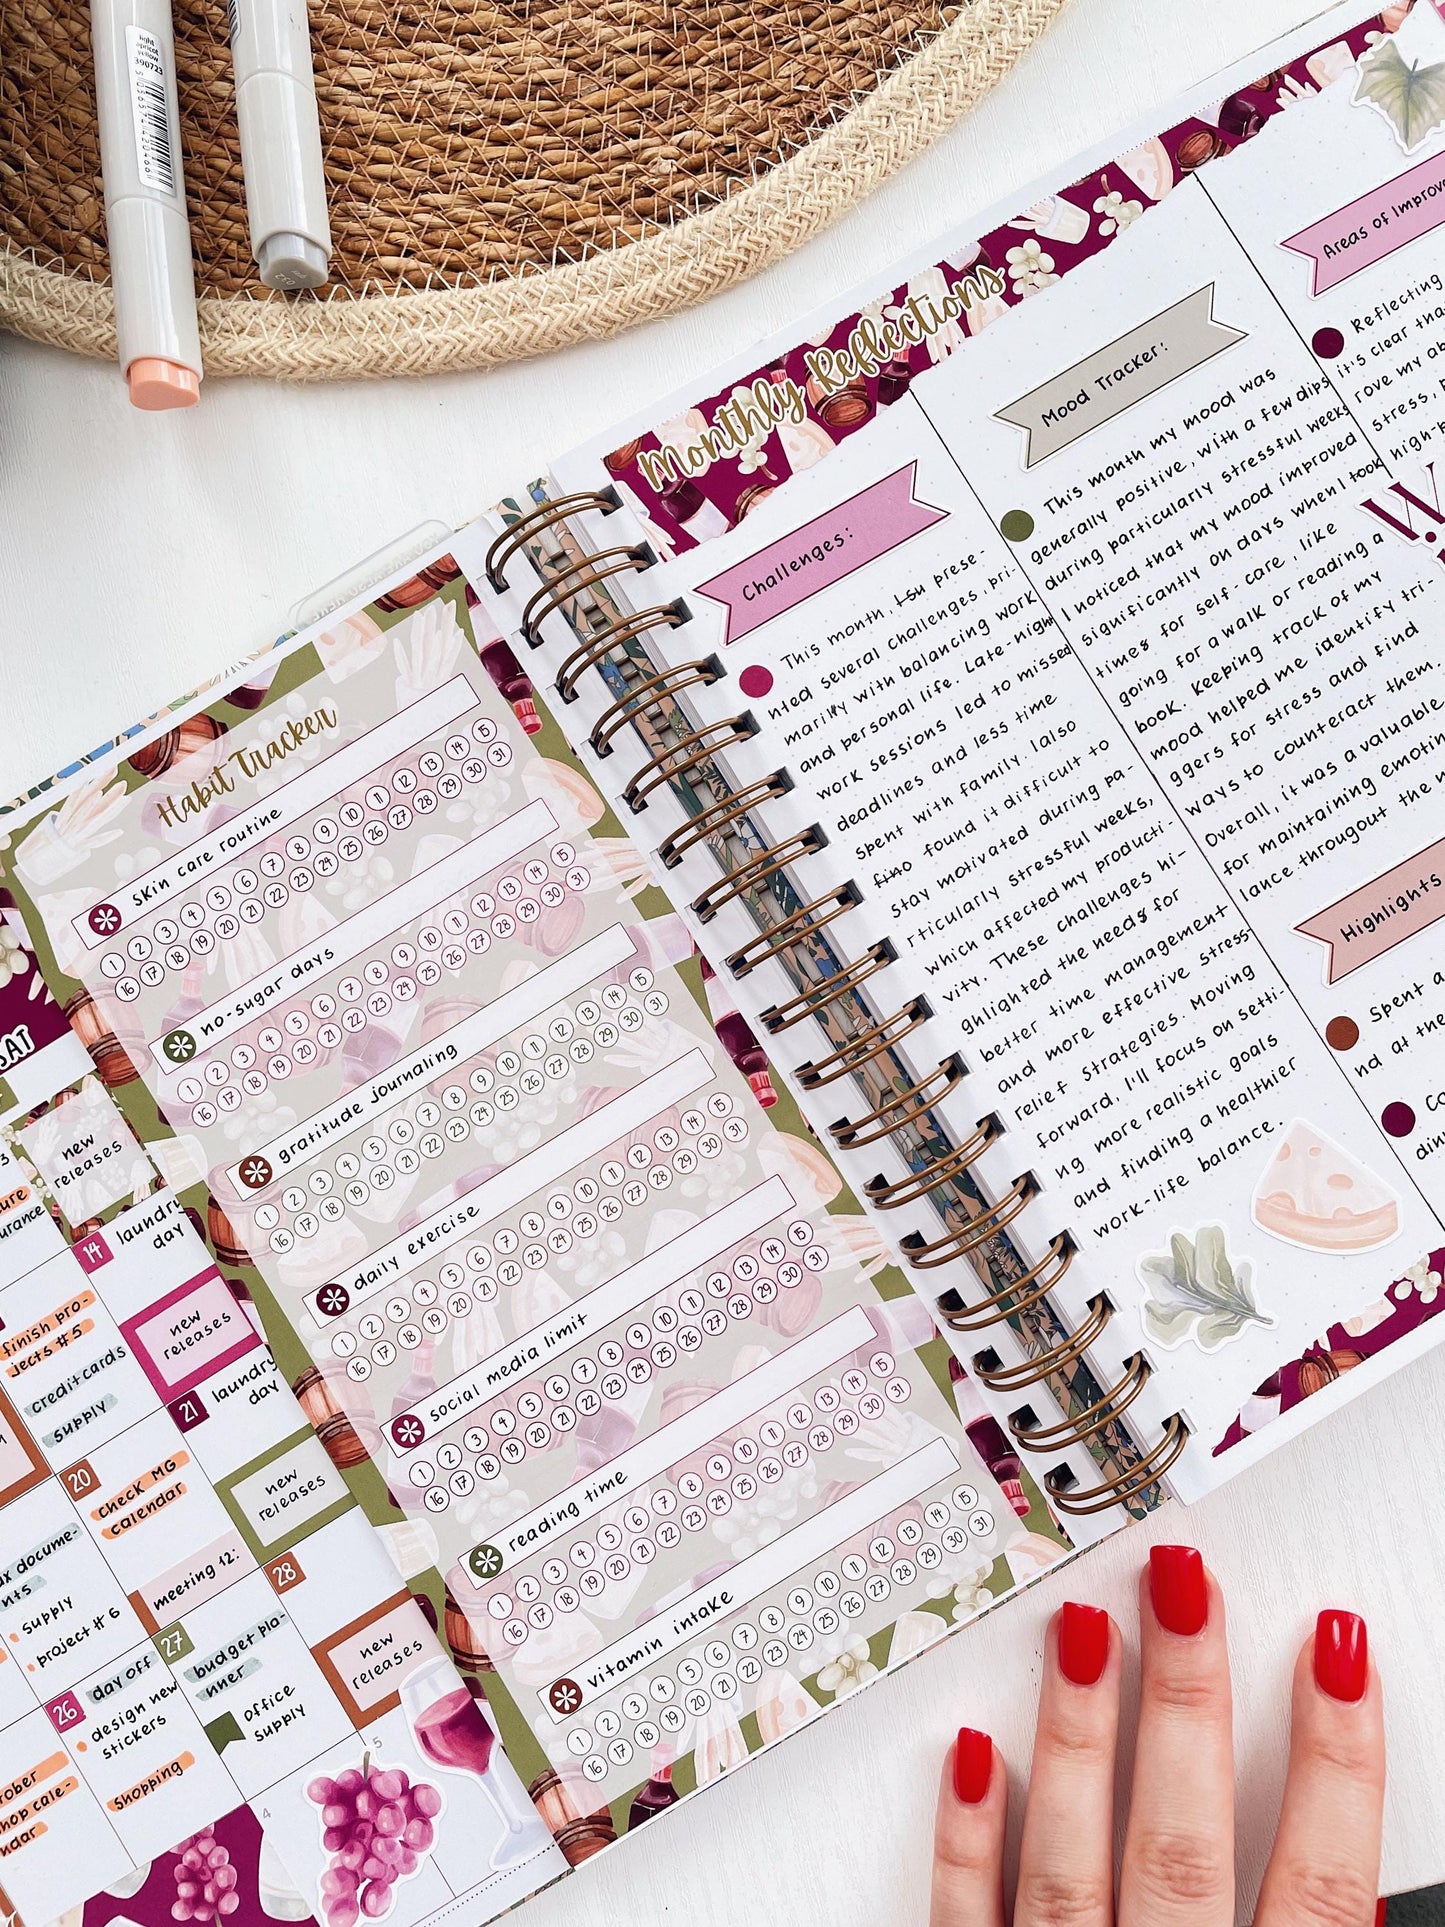 light
apricot
yellow
390723
5 056574 120466
Habit Tracker
skin care routine
1 2 3 4 5 6 7 8 9 10 11 12 13 14 15
16 17 18 19 20 21 22 23 24 25 26 27 28 29 30 31
no-sugar days
1 2 3 4 5 6 7 8 9 10 11 12 13 14 15
16 17 18 19 20 21 22 23 24 25 26 27 28 29 30 31
gratitude journaling
1 2 3 4 5 6 7 8 9 10 11 12 13 14 15
16 17 18 19 20 21 22 23 24 25 26 27 28 29 30 31
daily exercise
1 2 3 4 5 6 7 8 9 10 11 12 13 14 15
16 17 18 19 20 21 22 23 24 25 26 27 28 29 30 31
social media limit
1 2 3 4 5 6 7 8 9 10 11 12 13 14 15
16 17 18 19 20 21 22 23 24 25 26 27 28 29 30 31
reading time
1 2 3 4 5 6 7 8 9 10 11 12 13 14 15
16 17 18 19 20 21 22 23 24 25 26 27 28 29 30 31
vitamin intake
1 2 3 4 5 6 7 8 9 10 11 12 13 14 15
16 17 18 19 20 21 22 23 24 25 26 27 28 29 30 31
SAT
new
releases
14
laundry
day
new
releases
finish pro-
jects #5
credit cards
supply
21
laundry
day
new
releases
20
check MG
calendar
meeting 12:
28
new
releases
supply
project #6
27
budget pla-
nner
office
supply
26
day off
design new
stickers
shopping
5
4
Monthly Reflections
Challenges:
This month, I su prese-
nted several challenges, pri-
marily with balancing work
and personal life. Late-night
work sessions led to missed
deadlines and less time
spent with family. I also
fino found it difficult to
stay motivated during pa-
rticularly stressful weeks,
which affected my producti-
vity. These challenges hi-
ghlighted the needs for
better time management
and more effective stress-
relief strategies. Moving
forward, I'll focus on setti-
ng more realistic goals
and finding a healthier
work-life balance.
Mood Tracker:
This month my mood was
generally positive, with a few dips
during particularly stressful weeks
I noticed that my mood improved
significantly on days when I took
times for self-care, like
going for a walk or reading a
book. Keeping track of my
mood helped me identify tri-
ggers for stress and find
ways to counteract them.
Overall, it was a valuable
for maintaining emotin
lance througout the
Areas of Improve
Reflecting
it's clear tha
rove my ab
stress,
high-p
W
Highlights
Spent a
nd at the
Co
din